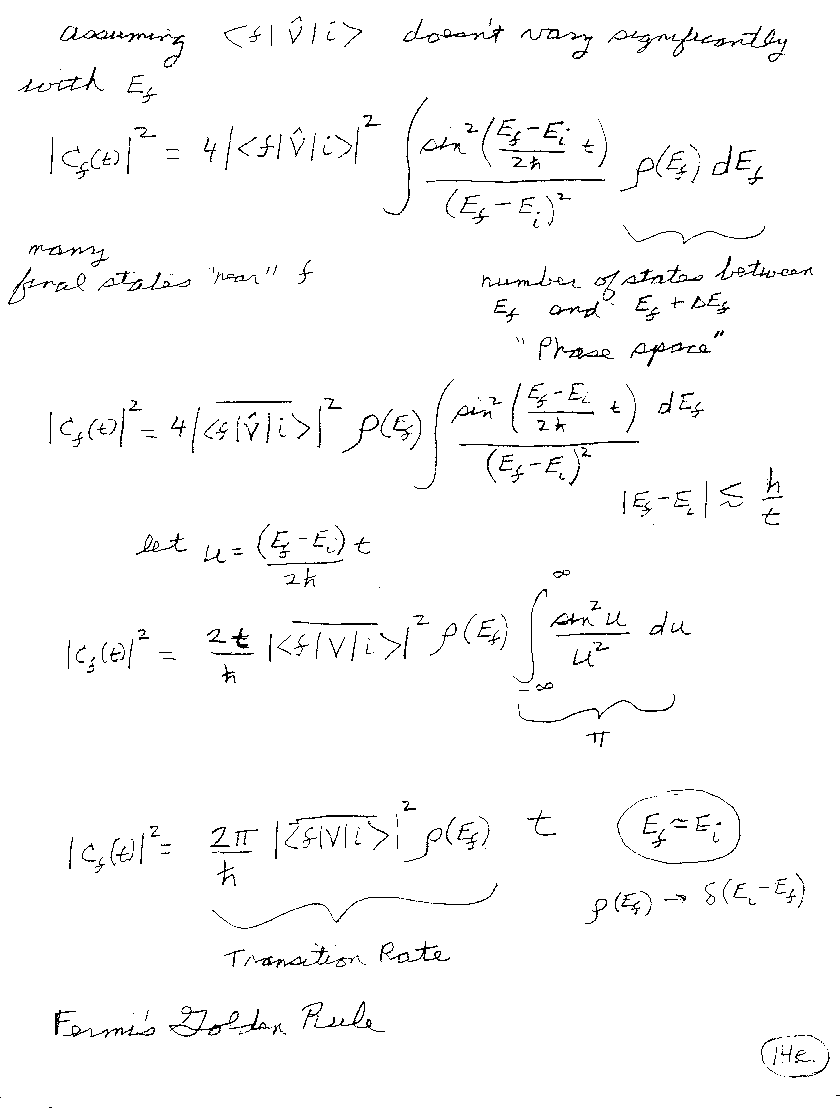 assuming <f|V̂|i> doesn't vary significantly
with E_f
|C_f(t)|² = 4|<f|V̂|i>|² ∫ sin²((E_f-E_i)/2ħ t)/(E_f-E_i)² ρ(E_f) dE_f
many
final states "near" f
number of states between
E_f and E_f + ΔE_f
"Phase space"
|C_f(t)|² = 4|<f|V̂|i>|² ρ(E_f) ∫ sin²((E_f-E_i)/2ħ t)/(E_f-E_i)² dE_f
|E_f-E_i| ≲ ħ/t
let u = (E_f-E_i)t/2ħ
|C_f(t)|² = 2t/ħ |<f|V|i>|² ρ(E_f) ∫_{-∞}^{∞} sin²u/u² du
π
|C_f(t)|² = 2π/ħ |<f|V|i>|² ρ(E_f) t E_f ≃ E_i
ρ(E_f) → δ(E_i-E_f)
Transition Rate
Fermi's Golden Rule